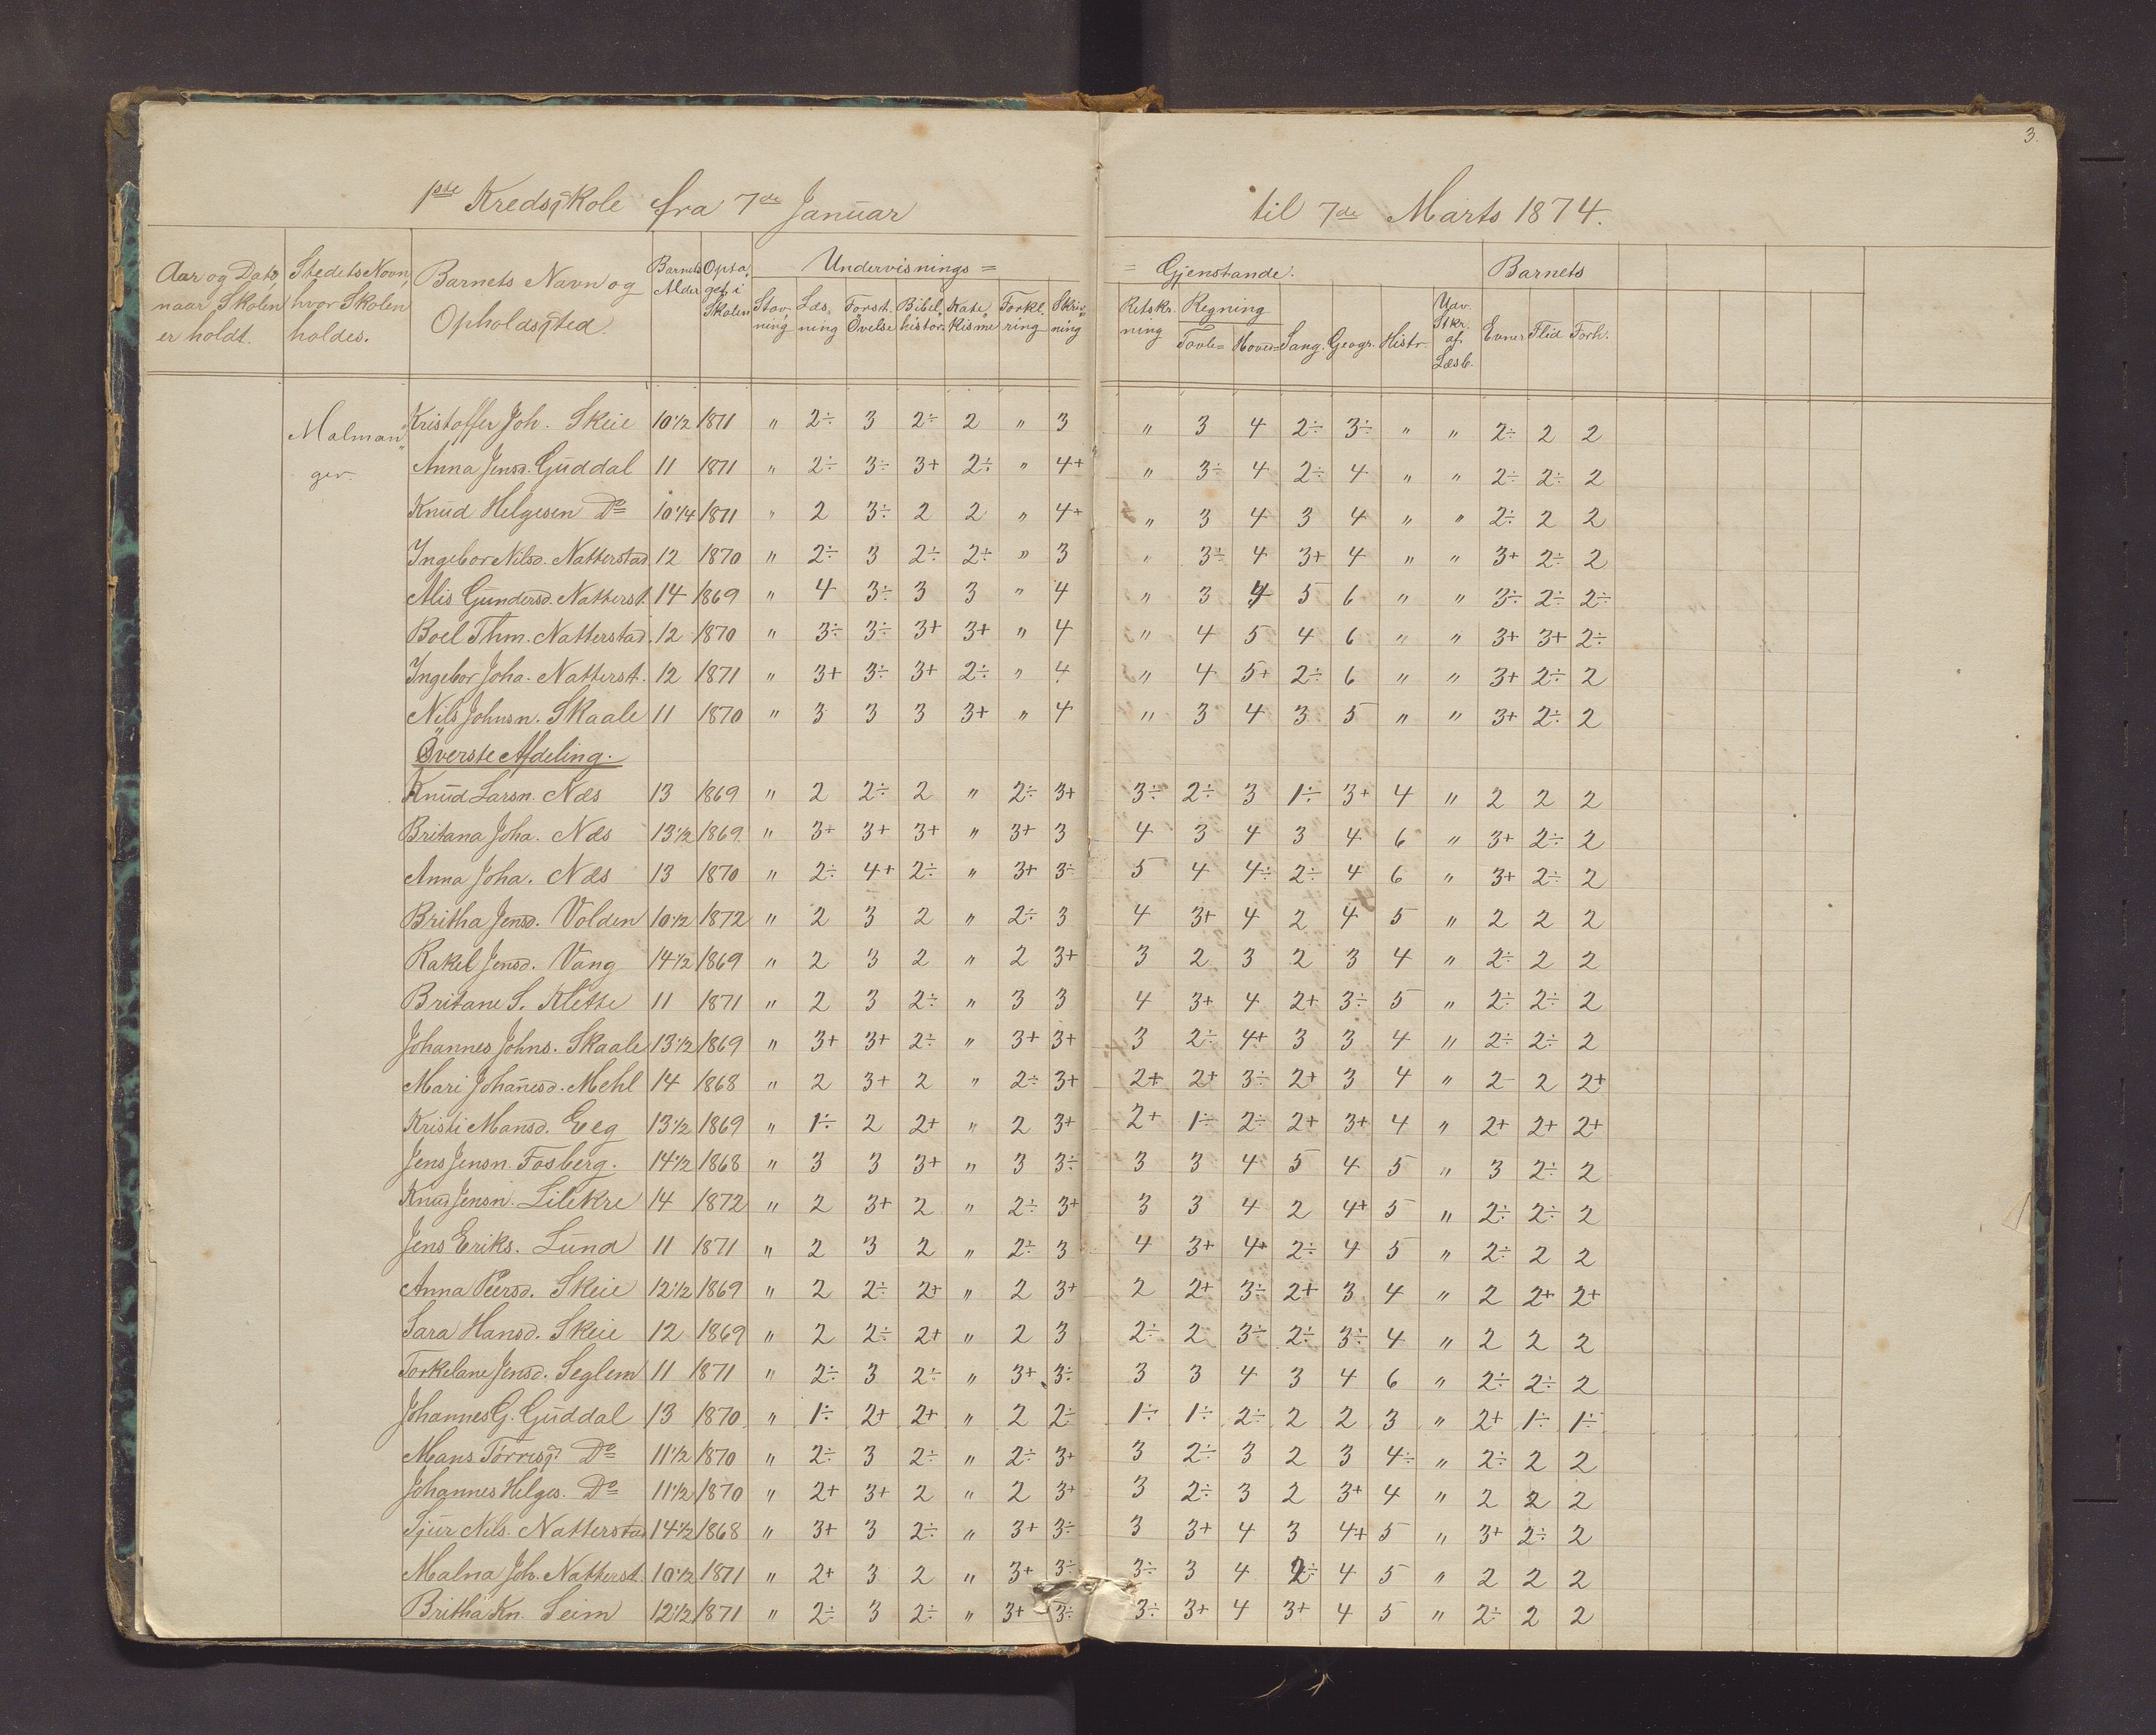 3.
1ste Kredsskole fra 7de Januar til 7de Marts 1874.
Aar og Dato, naar Skolen er holdt. | Stedets Navn, hvor Skolen holdes. | Barnets Navn og Opholdssted. | Barnets Alder | Optaget i Skolen | Undervisnings= Gjenstande. | Barnets
Stav,ning | Læs,ning | Forst. Övelse | Bibel,histor. | Kate,kisme | Forkl.ring | Skriv,ning | Retskr.ning | Regning Tavle= | Hoved= | Sang. | Geogr. | Histr. | Udv. Stkr. af Læseb. | Evner | Flid | Forh.
Malman„ger.
Kristoffer Joh. Skeie 10 1/2 1871 „ 2÷ 3 2÷ 2 „ 3 „ 3 4 2÷ 3÷ „ „ 2÷ 2 2
Anna Jensd. Guddal 11 1871 „ 2÷ 3÷ 3+ 2÷ „ 4+ „ 3÷ 4 2÷ 4 „ „ 2÷ 2÷ 2
Knud Helgesen Do 10 1/4 1871 „ 2 3÷ 2 2 „ 4+ „ 3 4 3 4 „ „ 2÷ 2 2
Ingebor Nilsd. Natterstad 12 1870 „ 2÷ 3 2÷ 2÷ „ 3 „ 3÷ 4 3+ 4 „ „ 3+ 2÷ 2
Alis Gundersd. Natterst. 14 1869 „ 4 3÷ 3 3 „ 4 „ 3 4 5 6 „ „ 3÷ 2÷ 2÷
Boel Thm. Natterstad. 12 1870 „ 3÷ 3÷ 3+ 3+ „ 4 „ 4 5 4 6 „ „ 3+ 3+ 2÷
Ingebor Joha. Natterst. 12 1871 „ 3+ 3÷ 3+ 2÷ „ 4 „ 4 5+ 2÷ 6 „ „ 3+ 2÷ 2
Nils Johnsn. Skaale 11 1870 „ 3 3 3 3+ „ 4 „ 3 4 3 5 „ „ 3+ 2÷ 2
Överste Afdeling.
Knud Larsn. Næs 13 1869 „ 2 2÷ 2 „ 2÷ 3+ 3÷ 2÷ 3 1÷ 3+ 4 „ 2 2 2
Britana Joha. Næs 13 1/2 1869 „ 3+ 3+ 3+ „ 3+ 3 4 3 4 3 4 6 „ 3+ 2÷ 2
Anna Joha. Næs 13 1870 „ 2÷ 4+ 2÷ „ 3+ 3÷ 5 4 4÷ 2÷ 4 6 „ 3+ 2÷ 2
Britha Jensd. Volden 10 1/2 1872 „ 2 3 2 „ 2÷ 3 4 3+ 4 2 4 5 „ 2 2 2
Rakel Jensd. Vang 14 1/2 1869 „ 2 3 2 „ 2 3+ 3 2 3 2 3 4 „ 2÷ 2 2
Britane S. Klette 11 1871 „ 2 3 2÷ „ 3 3 4 3+ 4 2+ 3÷ 5 „ 2÷ 2÷ 2
Johannes Johns. Skaale 13 1/2 1869 „ 3+ 3+ 2÷ „ 3+ 3+ 3 2÷ 4+ 3 3 4 „ 2÷ 2÷ 2
Mari Johanesd. Mehl 14 1868 „ 2 3+ 2 „ 2÷ 3+ 2+ 2+ 3÷ 2+ 3 4 „ 2- 2 2+
Kristi Mansd. Eeg 13 1/2 1869 „ 1÷ 2 2+ „ 2 3+ 2+ 1÷ 2÷ 2+ 3+ 4 „ 2+ 2+ 2+
Jens Jensn. Fosberg. 14 1/2 1868 „ 3 3 3+ „ 3 3÷ 3 3 4 5 4 5 „ 3 2÷ 2
Knud Jensn. Lilekre 14 1872 „ 2 3+ 2 „ 2÷ 3+ 3 3 4 2 4+ 5 „ 2÷ 2÷ 2
Jens Eriks. Lund 11 1871 „ 2 3 2 „ 2÷ 3 4 3+ 4+ 2÷ 4 5 „ 2÷ 2 2
Anna Peersd. Skeie 12 1/2 1869 „ 2 2÷ 2+ „ 2 3+ 2 2+ 3÷ 2+ 3 4 „ 2 2+ 2+
Sara Hansd. Skeie 12 1869 „ 2 2÷ 2+ „ 2 3 2÷ 2 3÷ 2÷ 3÷ 4 „ 2 2 2
Torkelane Jensd. Seglem 11 1871 „ 2÷ 3 2÷ „ 3+ 3÷ 3 3 4 3 4 6 „ 2÷ 2÷ 2
Johannes G. Guddal 13 1870 „ 1÷ 2+ 2+ „ 2 2÷ 1÷ 1÷ 2÷ 2 2 3 „ 2+ 1÷ 1÷
Mans Torris. Do 11 1/2 1870 „ 2÷ 3 2÷ „ 2÷ 3+ 3 2÷ 3 2 3 4÷ „ 2÷ 2 2
Johannes Helges. Do 11 1/2 1870 „ 2+ 3+ 2 „ 2 3+ 3 2÷ 3 2 3+ 4 „ 2 2 2
Sjur Nils. Natterstad 14 1/2 1868 „ 3+ 3 2÷ „ 3+ 3÷ 3 3+ 4 3 4+ 5 „ 3+ 2÷ 2
Malna Joh. Natterst. 10 1/2 1871 „ 2+ 3 2 „ 3+ 3÷ 3÷ 3 4 2÷ 4 5 „ 2 2 2
Britha Kn. Seim 12 1/2 1871 „ 2÷ 3 2÷ „ 3+ 3÷ 3÷ 3+ 4 3+ 4 5 „ 2÷ 2 2